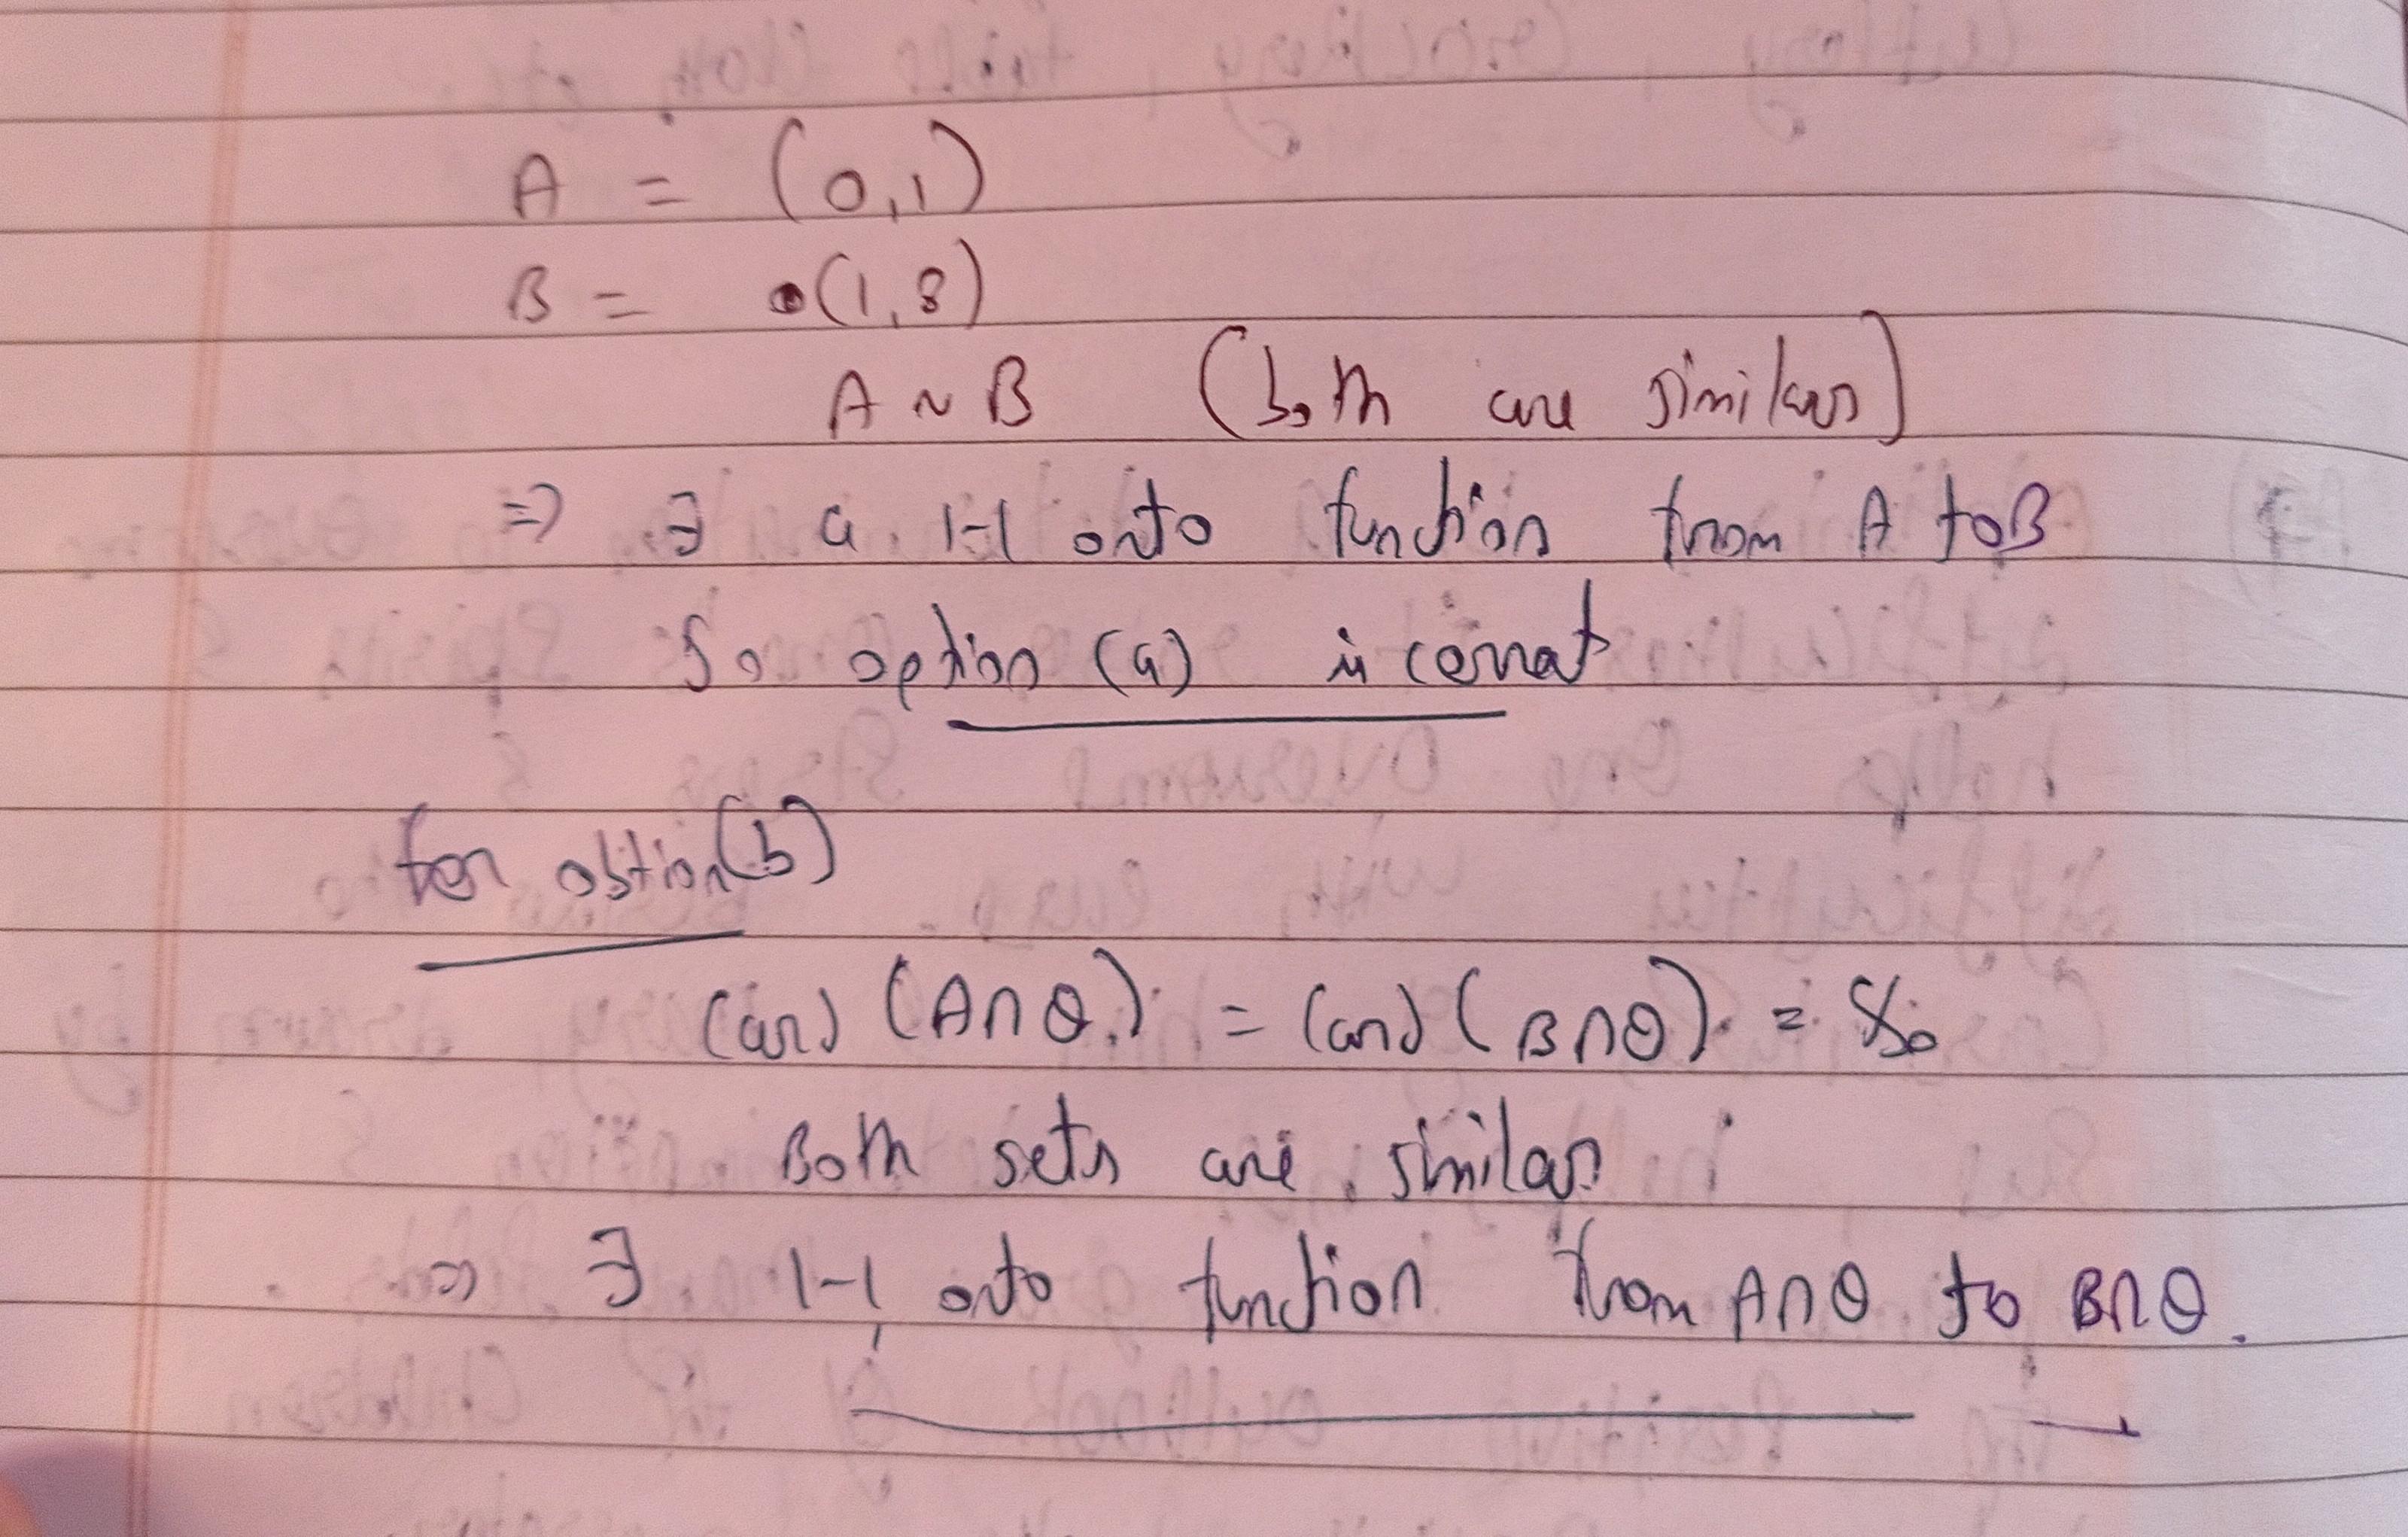 A = (0,1)
B = (1,8)
A ~ B (both are similar)
=> ∃ a 1-1 onto function from A to B
So option (a) is correct
for obtion (b)
Card (A∩Q) = Card (B∩Q) = ℵ0
Both sets are similar
=> ∃ 1-1 onto function from A∩Q to B∩Q.